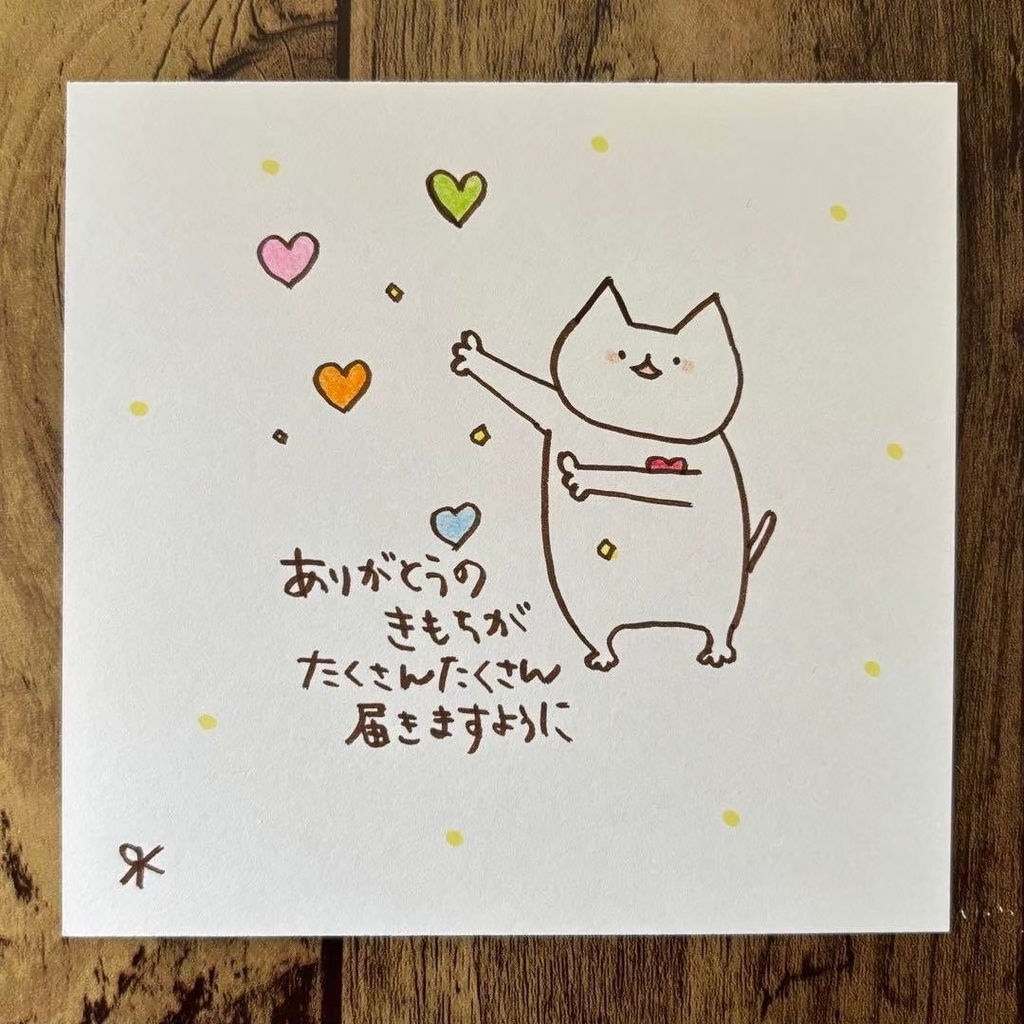 ありがとうの
きもちが
たくさんたくさん
届きますように